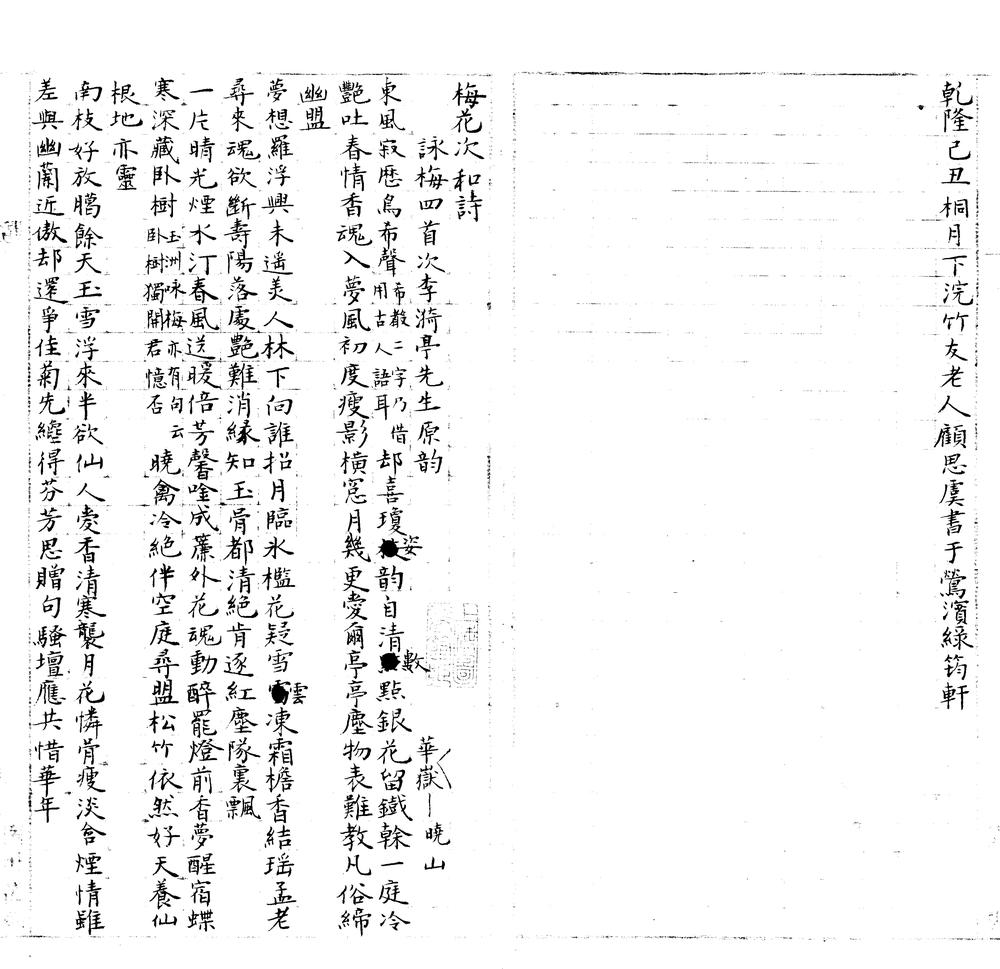 乾隆己丑桐月下浣竹友老人顧思虞書于鶯濱綠筠軒
梅花次和詩
詠梅四首次李漪亭先生原韵 華嶽 曉山
東風寂歷鳥希聲希散二字乃借用古人語耳却喜瓊姿韵自清數點銀花留鐵榦一庭冷
艷吐春情香魂入夢風初度瘦影橫窓月幾更愛爾亭亭塵物表難教凡俗締
幽盟
夢想羅浮興未遥美人林下向誰招月臨氷檻花疑雪雲凍霜檐香結瑶孟老
尋來魂欲斷壽陽落處艷難消緣知玉骨都清絕肯逐紅塵隊裏飄
一片晴光煙水汀春風送暖倍芳馨唫成簾外花魂動醉罷燈前香夢醒宿蝶
寒深藏卧樹玉洲咏梅亦有句云卧樹獨開君憶否曉禽冷絕伴空庭尋盟松竹依然好天養仙
根地亦靈
南枝好放臈餘天玉雪浮來半欲仙人愛香清寒襲月花憐骨瘦淡含煙情雖
差與幽蘭近傲却還爭佳菊先纔得芬芳思贈句騷壇應共惜華年